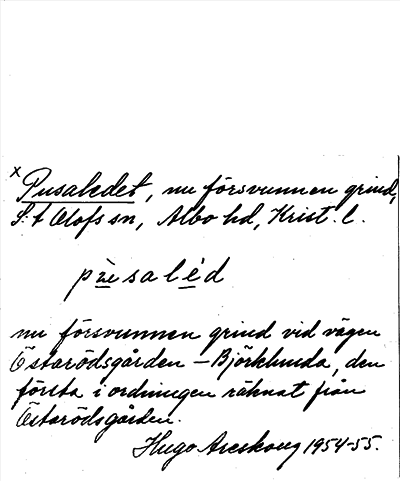 x Pusaledet, nu försvunnen grind,
S:t Olofs sn, Albo hd, Krist. l.
nu försvunnen grind vid vägen
Östarödsgården – Björkhuda, den
första i ordningen räknat från
Östarödsgården.
Hugo Areskoug 1954-55.